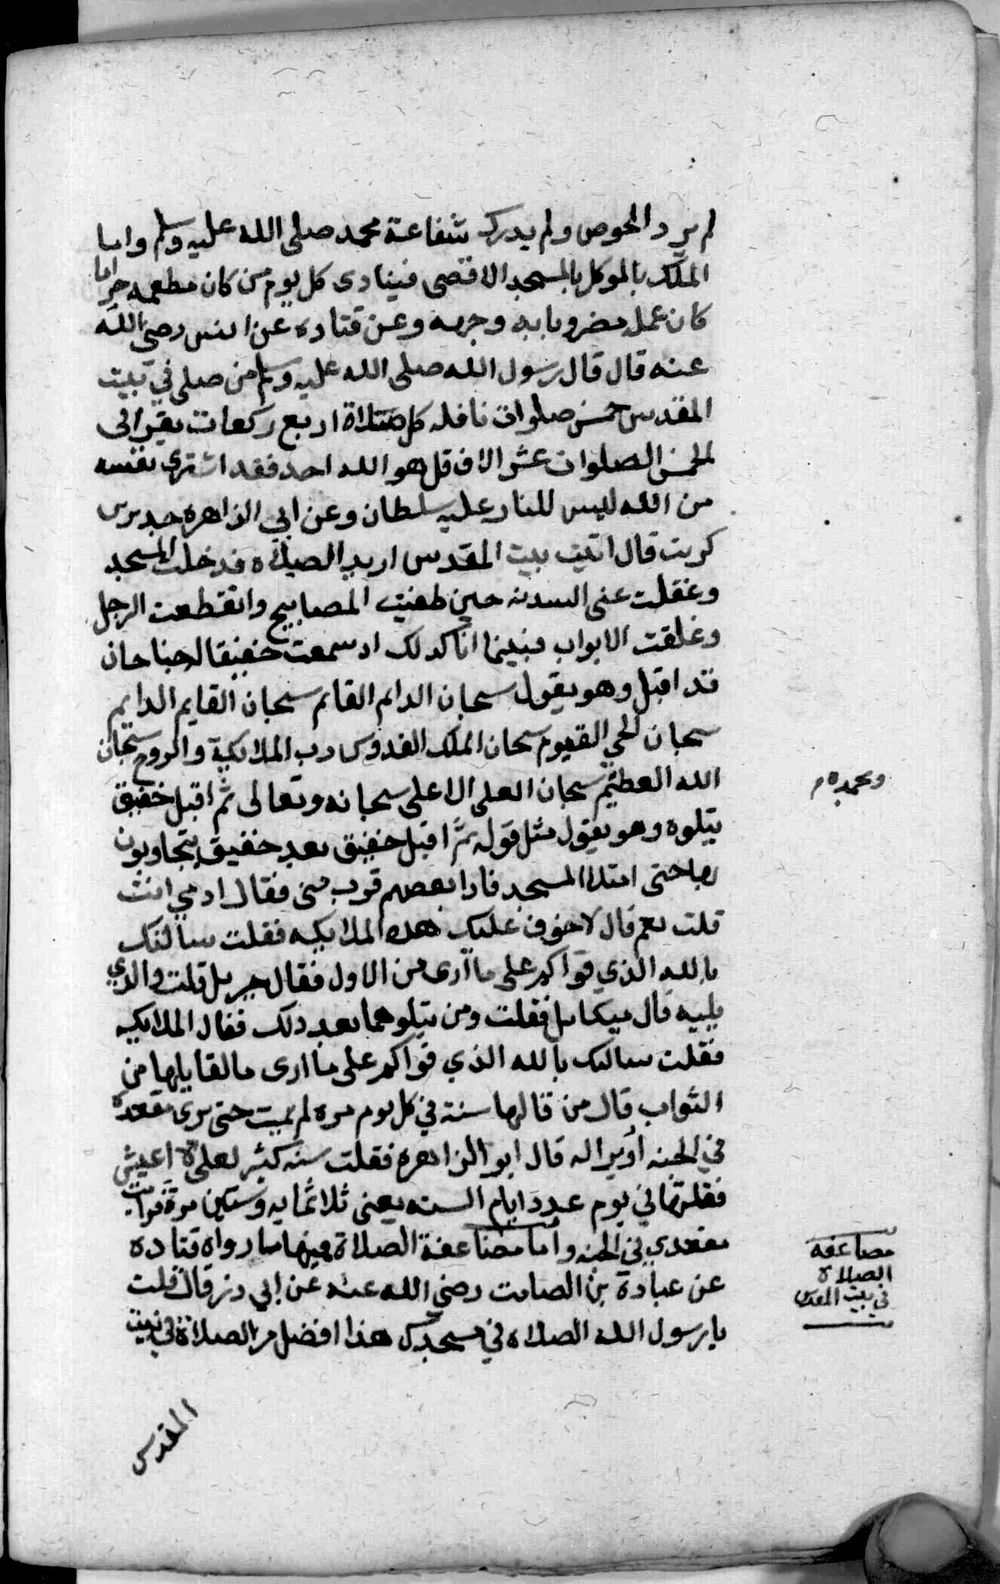 لم يرد الحوض ولم يدرك شفاعة محمد صلى الله عليه وسلم واما
الملك بالموكل بالمسجد الاقصى فينادى كل يوم من كان مطعمه حراما
كان عمله مضروبا به وجهه وعن قتاده عن انس رضي الله
عنه قال قال رسول الله صلى الله عليه وسلم من صلى في بيت
المقدس خمس صلوات نافله كل صلاة اربع ركعات يقرا في
الخمس الصلوات عشر الاف قل هو الله احد فقد اشترى نفسه
من الله ليس للنار عليه سلطان وعن ابي الزاهره حدير بن
كريب قال اتيت بيت المقدس اريد الصلاه فدخلت المسجد
وغفلت عنى السدنه حين طفيت المصابيح وانقطعت الرجل
وغلقت الابواب فبينما انا كدلك اد سمعت خفيقا له جناحان
قد اقبل وهو يقول سبحان الدايم القايم سبحان القايم الدايم
سبحان الحي القيوم سبحان الملك القدوس رب الملايكه والروح سبحان
الله العظيم سبحان العلى الاعلى سبحانه وتعالى ثم اقبل خفيق
يتلوه وهو يقول مثل قوله ثم اقبل خفيق بعد خفيق يتجاوبون
بها حتى امتلا المسجد فادا بعضهم قرب منى فقال ادمي انت
قلت نعم قال لا خوف عليك هده الملايكه فقلت سالتك
بالله الذي قواكم على ما أرى من الاول فقال جبريل قلت والذي
يليه قال ميكايل فقلت ومن يتلوهما بعد دلك فقال الملايكه
فقلت سالتك بالله الذي قواكم على ما ارى ما لقايلها من
الثواب قال من قالها سنة في كل يوم مره لم يمت حتى يرى مقعده
في الجنه أو يرا له قال ابو الزاهره فقلت سنه كثير لعلي لا اعيش
فقلتها في يوم عدد ايام السنه يعنى ثلاثمايه وستين مرة فرايت
مقعدي في الجنه وأما مضاعفة الصلاة فيها ما رواه قتاده
عن عبادة بن الصامت رضي الله عنه عن ابي ذر قال قلت
يا رسول الله الصلاه في مسجدك هذا افضل من الصلاة في بيت
المقدس
وبحمده م
مضاعفه
الصلاة
في بيت المقدس